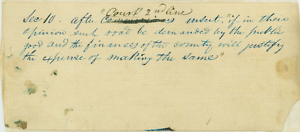 Court 2nd line
Sec 10. After insert, "if in their
opinion such road be demanded by the public
good and the finances of the county will justify
the expense of making the same"